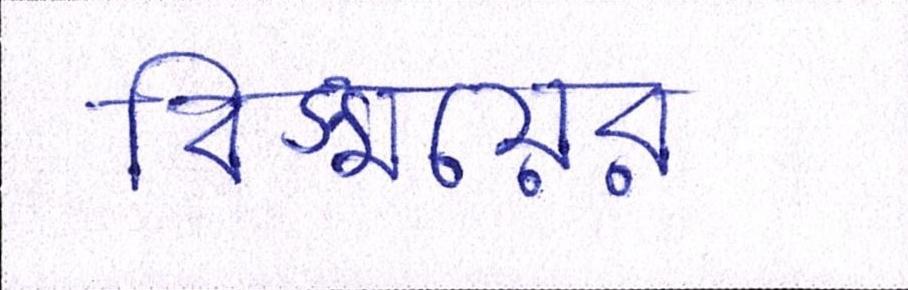 বিস্ময়ের